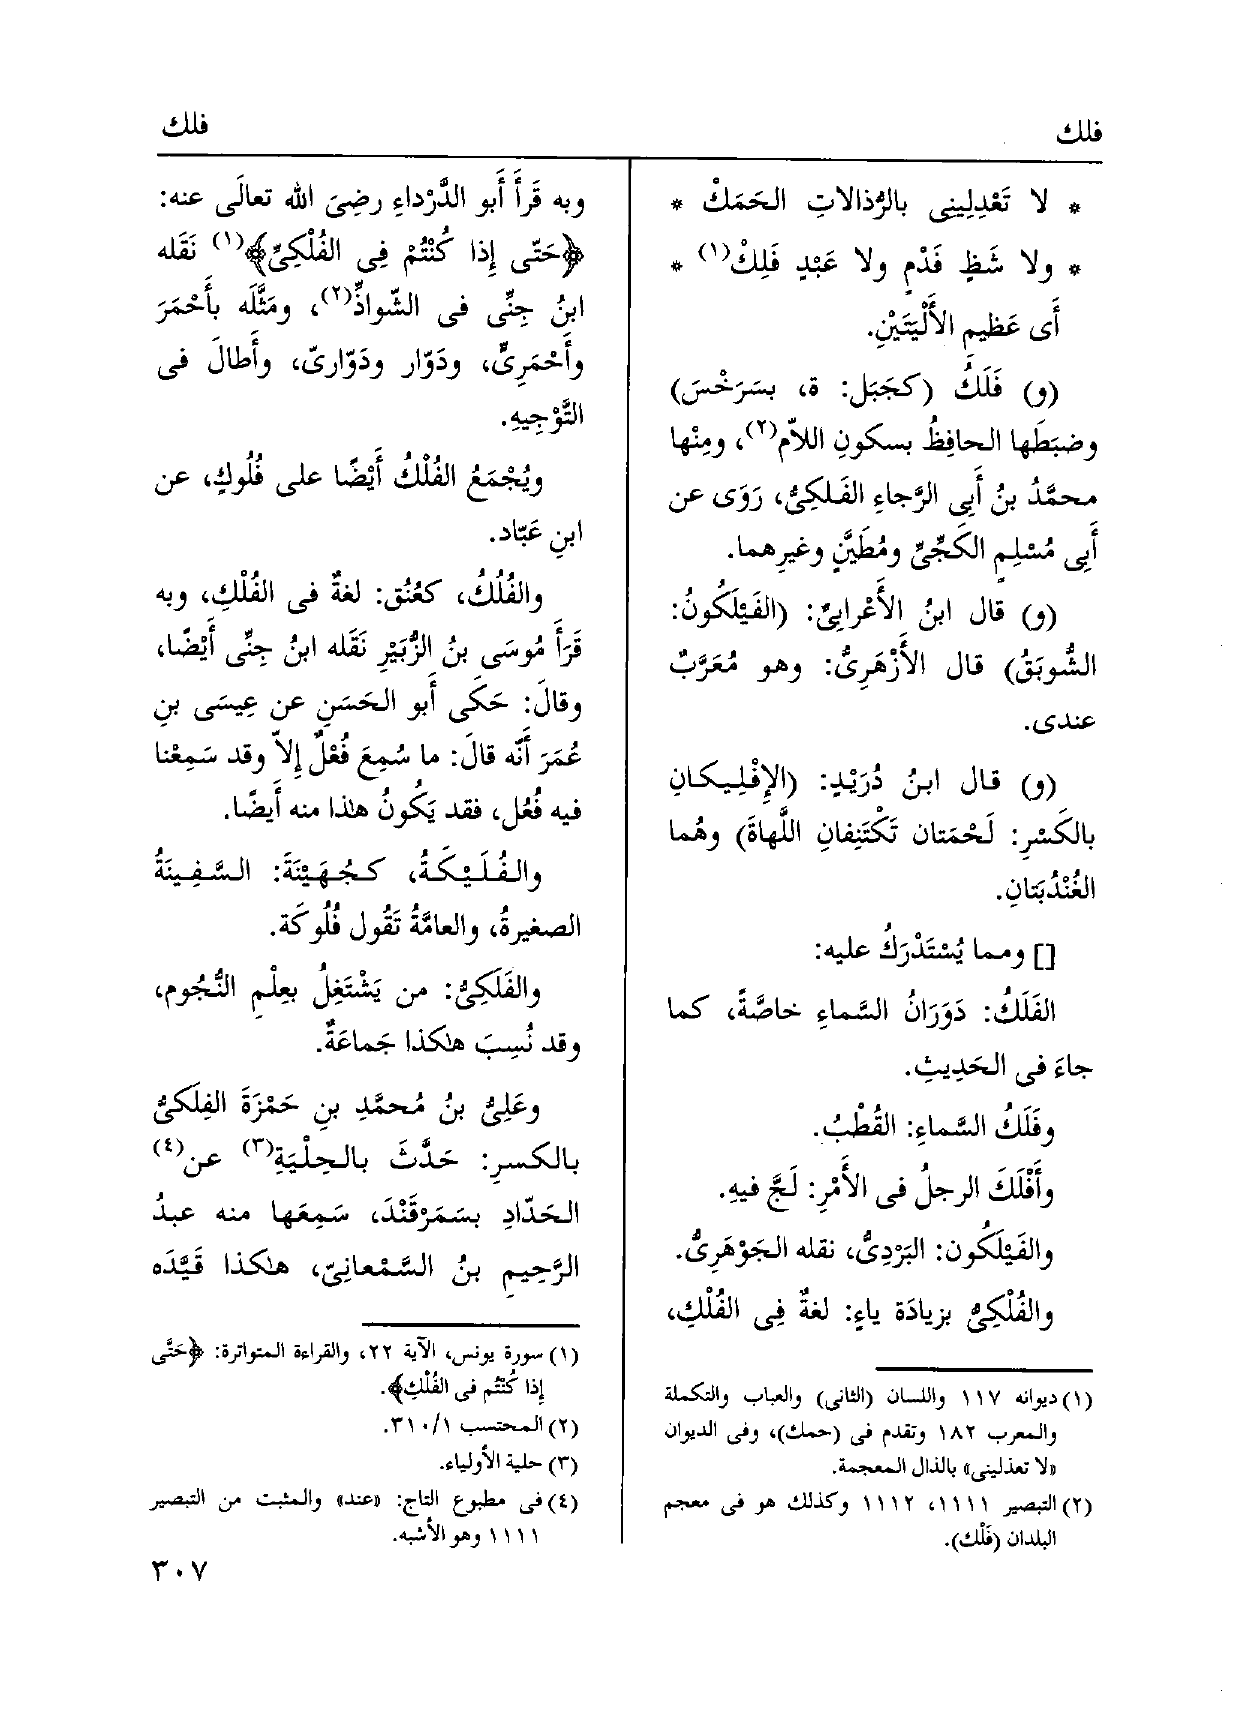 فلك
فلك
* لا تَعْدِلِينى بالرُّذالاتِ الحَمَكْ *
* ولا شَظٍ فَدْمٍ ولا عَبْدٍ فَلِكْ(١) *
أى عَظيمِ الأَلْيَتَيْنِ.
(و) فَلَكُ (كجَبَل: ة، بسَرَخْسَ)
وضبَطَها الحافِظُ بسكونِ اللاّم(٢)، ومِنْها
محمَّدُ بنُ أَبِى الرَّجاءِ الفَلكِىُّ، رَوَى عن
أَبِى مُسْلِمٍ الكَجِّىِّ ومُطَيَّنٍ وغيرِهما.
(و) قال ابنُ الأَعْرابِىّ: (الفَيْلَكُونُ:
الشُّوبَقُ) قال الأَزْهَرِىُّ: وهو مُعَرَّبٌ
عندى.
(و) قال ابنُ دُرَيْدٍ: (الإِفْلِيكانِ
بالكَسْرِ: لَحْمَتان تَكْتَنِفانِ اللَّهاةَ) وهُما
الغُنْدُبَتانِ.
[] ومما يُسْتَدْرَكُ عليه:
الفَلَكُ: دَوَرَانُ السَّماءِ خاصَّةً، كما
جاءَ فى الحَدِيثِ.
وفَلَكُ السَّماءِ: القُطْبُ.
وأَفْلَكَ الرجلُ فى الأَمْرِ: لَجَّ فيهِ.
والفَيْلَكُون: البَرْدِىُّ، نقله الجَوْهَرِىُّ.
والفُلْكِىُّ بزيادَة ياءٍ: لغةٌ فِى الفُلْكِ،
(١) ديوانه ١١٧ واللسان (الثانى) والعباب والتكملة
والمعرب ١٨٢ وتقدم فى (حمك)، وفى الديوان
«لا تعذلينى» بالذال المعجمة.
(٢) التبصير ١١١١، ١١١٢ وكذلك هو فى معجم
البلدان (فَلْك).
وبه قَرَأَ أَبو الدَّرْداءِ رضِىَ الله تعالَى عنه:
﴿حَتّى إِذا كُنْتُمْ فِى الفُلْكِىّ﴾(١) نَقَله
ابنُ جِنِّى فى الشّواذِّ(٢)، ومَثَّلَه بأَحْمَرَ
وأَحْمَرِىٍّ، ودَوّار ودَوّارىّ، وأَطالَ فى
التَّوْجِيهِ.
ويُجْمَعُ الفُلْكُ أَيْضًا على فُلُوكٍ، عن
ابنِ عَبّاد.
والفُلُكُ، كعُنُق: لغةٌ فى الفُلْكِ، وبه
قَرَأَ مُوسَى بنُ الزُّبَيْرِ نَقَله ابنُ جِنِّى أَيْضًا،
وقالَ: حَكَى أَبو الحَسَنِ عن عِيسَى بنِ
عُمَرَ أَنّه قالَ: ما سُمِعَ فُعْلٌ إِلاّ وقد سَمِعْنا
فيه فُعُل، فقد يَكُونُ هٰذا منه أَيضًا.
والفُلَيْكَةُ، كجُهَيْنَةَ: السَّفِينَةُ
الصغيرةُ، والعامَّةُ تَقُول فُلُوكَة.
والفَلَكِىُّ: من يَشْتَغِلُ بعِلْمِ النُّجُوم،
وقد نُسِبَ هٰكَذا جَماعَةٌ.
وعَلِىُّ بنُ مُحمَّدِ بنِ حَمْزَةَ الفِلَكىُّ
بالكسرِ: حَدَّثَ بالحِلْيَةِ(٣) عن(٤)
الحَدّادِ بسَمَرْقَنْدَ، سَمِعَها منه عبدُ
الرَّحِيمِ بنُ السَّمْعانِىّ، هٰكذا قَيَّدَه
(١) سورة يونس، الآية ٢٢، والقراءة المتواترة: ﴿حَتَّى
إذا كُنْتُم فى الفُلْكِ﴾.
(٢) المحتسب ٣١٠/١.
(٣) حلية الأولياء.
(٤) فى مطبوع التاج: «عند» والمثبت من التبصير
١١١١ وهو الأشبه.
٣٠٧